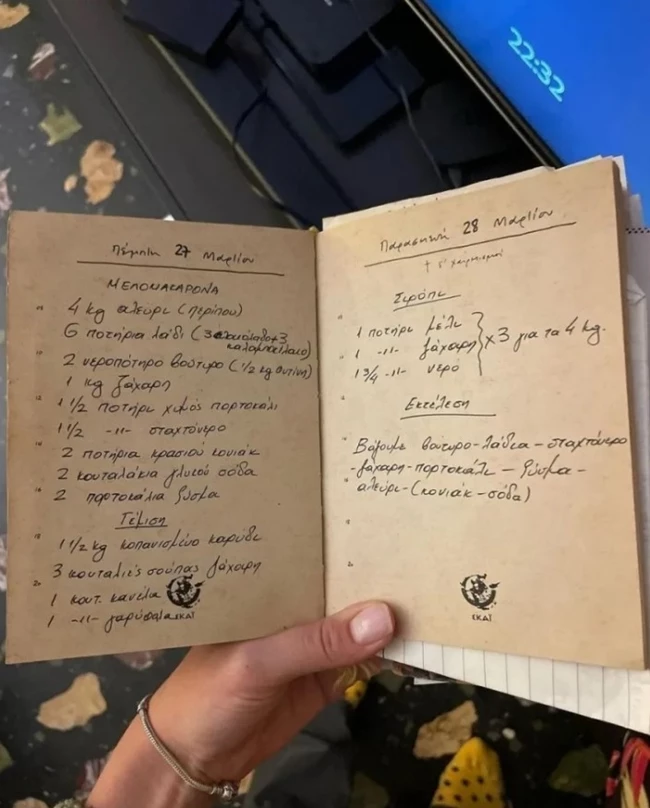 22:32
Πέμπτη 27 Μαρτίου
ΜΕΛΟΜΑΚΑΡΟΝΑ
4 kg αλεύρι (περίπου)
6 ποτήρια λάδι (3 + 3
καλαμποκέλαιο)
2 νεροπότηρο βούτυρο (1/2 kg φυτίνη)
1 kg ζάχαρη
1 1/2 ποτήρι χυμός πορτοκάλι
1 1/2 -//- σταχτόνερο
2 ποτήρια κρασιού κονιάκ
2 κουταλάκια γλυκού σόδα
2 πορτοκάλια ξύσμα
Γέμιση
1 1/2 kg κοπανισμένο καρύδι
3 κουταλιές σούπας ζάχαρη
1 κουτ. κανέλα
1 -//- γαρύφαλλα
ΕΚΔ
Παρασκευή 28 Μαρτίου
Σιρόπι
1 ποτήρι μέλι
1 -//- ζάχαρη
1 3/4 -//- νερό
x 3 για τα 4 kg.
Εκτέλεση
Βάζουμε βούτυρο - λάδια - σταχτόνερο
- ζάχαρη - πορτοκάλι - ξύσμα -
αλεύρι - (κονιάκ - σόδα)
ΕΚΔ